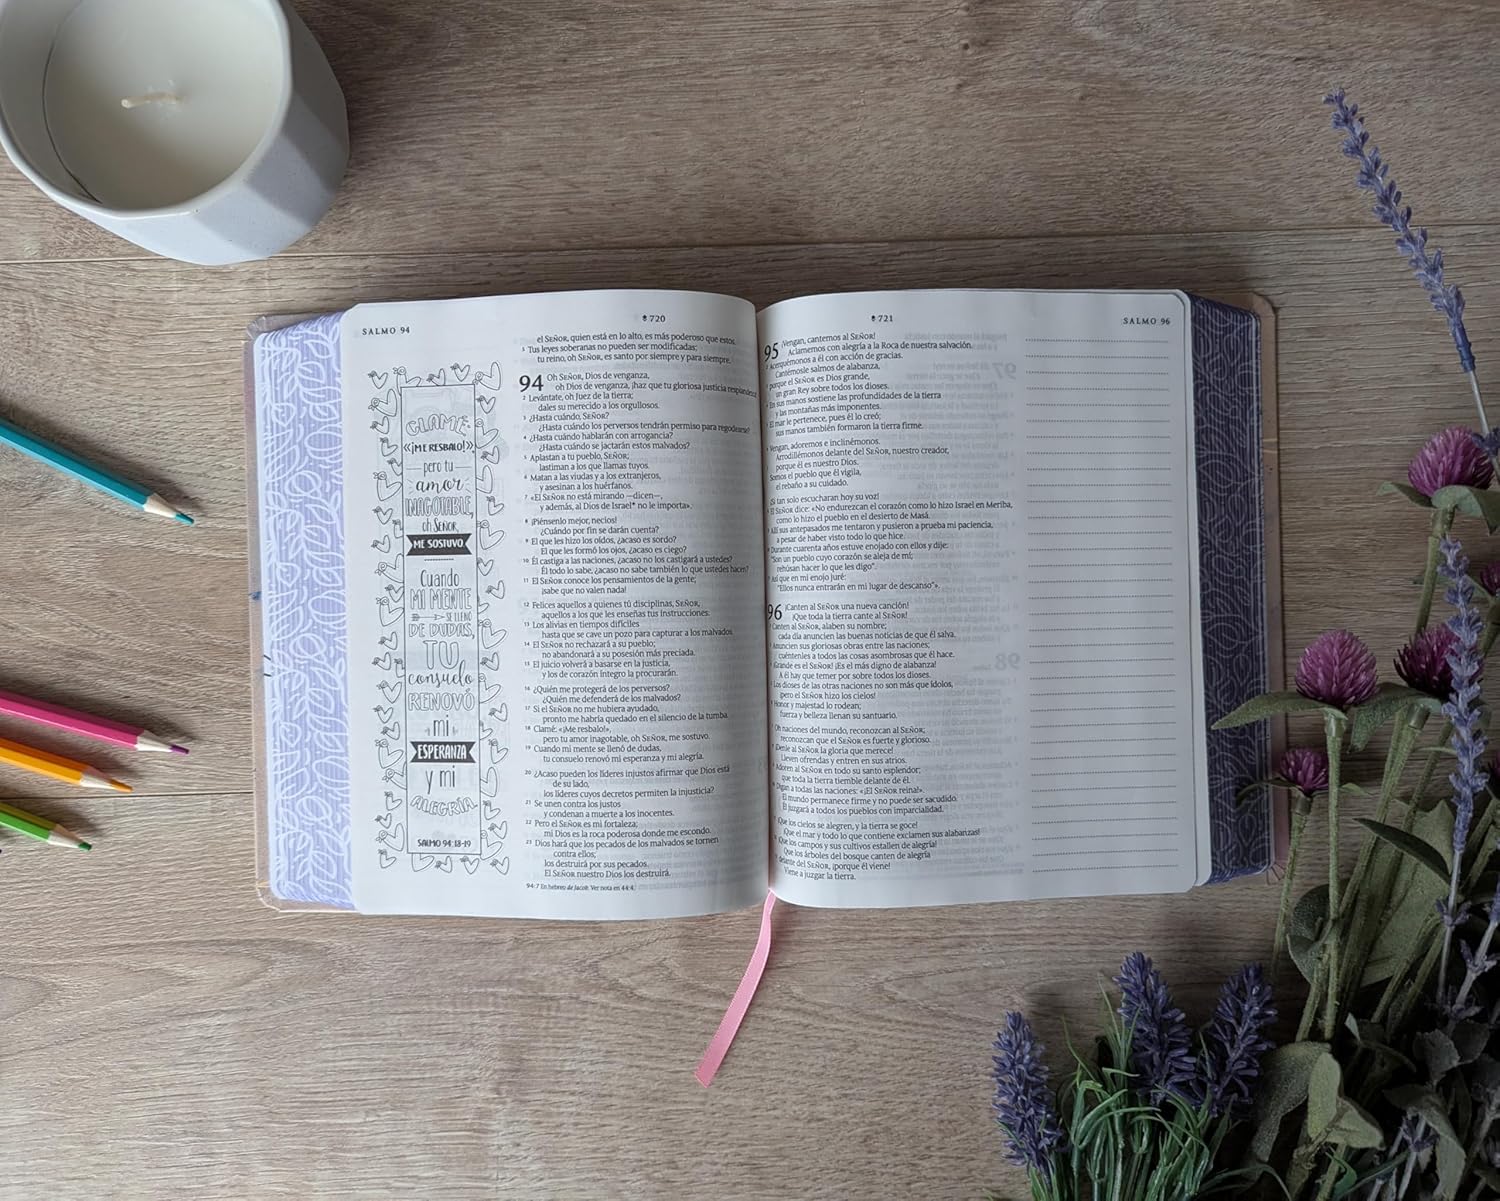 SALMO 94
720
el SEÑOR, quien está en lo alto, es más poderoso que estos.
5 Tus leyes soberanas no pueden ser modificadas;
tu reino, oh SEÑOR, es santo por siempre y para siempre.
CLAMÉ:
«¡ME RESBALO!»,
pero tu
amor
INAGOTABLE,
oh SEÑOR,
ME SOSTUVO.
Cuando
MI MENTE
SE LLENÓ
DE DUDAS,
TU
consuelo
RENOVÓ
mi
ESPERANZA
y mi
ALEGRÍA.
SALMO 94:18-19
94 Oh SEÑOR, Dios de venganza,
oh Dios de venganza, ¡haz que tu gloriosa justicia resplandezca!
2 Levántate, oh Juez de la tierra;
dales su merecido a los orgullosos.
3 ¿Hasta cuándo, SEÑOR?
¿Hasta cuándo los perversos tendrán permiso para regodearse?
4 ¿Hasta cuándo hablarán con arrogancia?
¿Hasta cuándo se jactarán estos malvados?
5 Aplastan a tu pueblo, SEÑOR;
lastiman a los que llamas tuyos.
6 Matan a las viudas y a los extranjeros,
y asesinan a los huérfanos.
7 «El SEÑOR no está mirando —dicen—,
y además, al Dios de Israel* no le importa».
8 ¡Piénsenlo mejor, necios!
¿Cuándo por fin se darán cuenta?
9 El que les hizo los oídos, ¿acaso es sordo?
El que les formó los ojos, ¿acaso es ciego?
10 Él castiga a las naciones, ¿acaso no los castigará a ustedes?
Él todo lo sabe, ¿acaso no sabe también lo que ustedes hacen?
11 El SEÑOR conoce los pensamientos de la gente;
¡sabe que no valen nada!
12 Felices aquellos a quienes tú disciplinas, SEÑOR,
aquellos a los que les enseñas tus instrucciones.
13 Los alivias en tiempos difíciles
hasta que se cave un pozo para capturar a los malvados.
14 El SEÑOR no rechazará a su pueblo;
no abandonará a su posesión más preciada.
15 El juicio volverá a basarse en la justicia,
y los de corazón íntegro la procurarán.
16 ¿Quién me protegerá de los perversos?
¿Quién me defenderá de los malvados?
17 Si el SEÑOR no me hubiera ayudado,
pronto me habría quedado en el silencio de la tumba.
18 Clamé: «¡Me resbalo!»,
pero tu amor inagotable, oh SEÑOR, me sostuvo.
19 Cuando mi mente se llenó de dudas,
tu consuelo renovó mi esperanza y mi alegría.
20 ¿Acaso pueden los líderes injustos afirmar que Dios está
de su lado,
los líderes cuyos decretos permiten la injusticia?
21 Se unen contra los justos
y condenan a muerte a los inocentes.
22 Pero el SEÑOR es mi fortaleza;
mi Dios es la roca poderosa donde me escondo.
23 Dios hará que los pecados de los malvados se tornen
contra ellos;
los destruirá por sus pecados.
El SEÑOR nuestro Dios los destruirá.
94:7 En hebreo de Jacob. Ver nota en 44:4.
721
SALMO 96
95 ¡Vengan, cantemos al SEÑOR!
Aclamemos con alegría a la Roca de nuestra salvación.
Acerquémonos a él con acción de gracias.
Cantémosle salmos de alabanza,
porque el SEÑOR es Dios grande,
un gran Rey sobre todos los dioses.
En sus manos sostiene las profundidades de la tierra
y las montañas más imponentes.
El mar le pertenece, pues él lo creó;
sus manos también formaron la tierra firme.
Vengan, adoremos e inclinémonos.
Arrodillémonos delante del SEÑOR, nuestro creador,
porque él es nuestro Dios.
Somos el pueblo que él vigila,
el rebaño a su cuidado.
¡Si tan solo escucharan hoy su voz!
El SEÑOR dice: «No endurezcan el corazón como lo hizo Israel en Meriba,
como lo hizo el pueblo en el desierto de Masá.
Allí sus antepasados me tentaron y pusieron a prueba mi paciencia,
a pesar de haber visto todo lo que hice.
Durante cuarenta años estuve enojado con ellos y dije:
"Son un pueblo cuyo corazón se aleja de mí;
rehúsan hacer lo que les digo".
Así que en mi enojo juré:
"Ellos nunca entrarán en mi lugar de descanso"».
96 ¡Canten al SEÑOR una nueva canción!
¡Que toda la tierra cante al SEÑOR!
Canten al SEÑOR, alaben su nombre;
cada día anuncien las buenas noticias de que él salva.
Anuncien sus gloriosas obras entre las naciones;
cuéntenles a todos las cosas asombrosas que él hace.
¡Grande es el SEÑOR! ¡Es el más digno de alabanza!
A él hay que temer por sobre todos los dioses.
Los dioses de las otras naciones no son más que ídolos,
¡pero el SEÑOR hizo los cielos!
Honor y majestad lo rodean;
fuerza y belleza llenan su santuario.
Oh naciones del mundo, reconozcan al SEÑOR;
reconozcan que el SEÑOR es fuerte y glorioso.
¡Denle al SEÑOR la gloria que merece!
Lleven ofrendas y entren en sus atrios.
Adoren al SEÑOR en todo su santo esplendor;
que toda la tierra tiemble delante de él.
Digan a todas las naciones: «¡El SEÑOR reina!».
El mundo permanece firme y no puede ser sacudido.
Él juzgará a todos los pueblos con imparcialidad.
¡Que los cielos se alegren, y la tierra se goce!
¡Que el mar y todo lo que contiene exclamen sus alabanzas!
¡Que los campos y sus cultivos estallen de alegría!
Que los árboles del bosque canten de alegría
delante del SEÑOR, ¡porque él viene!
Viene a juzgar la tierra.